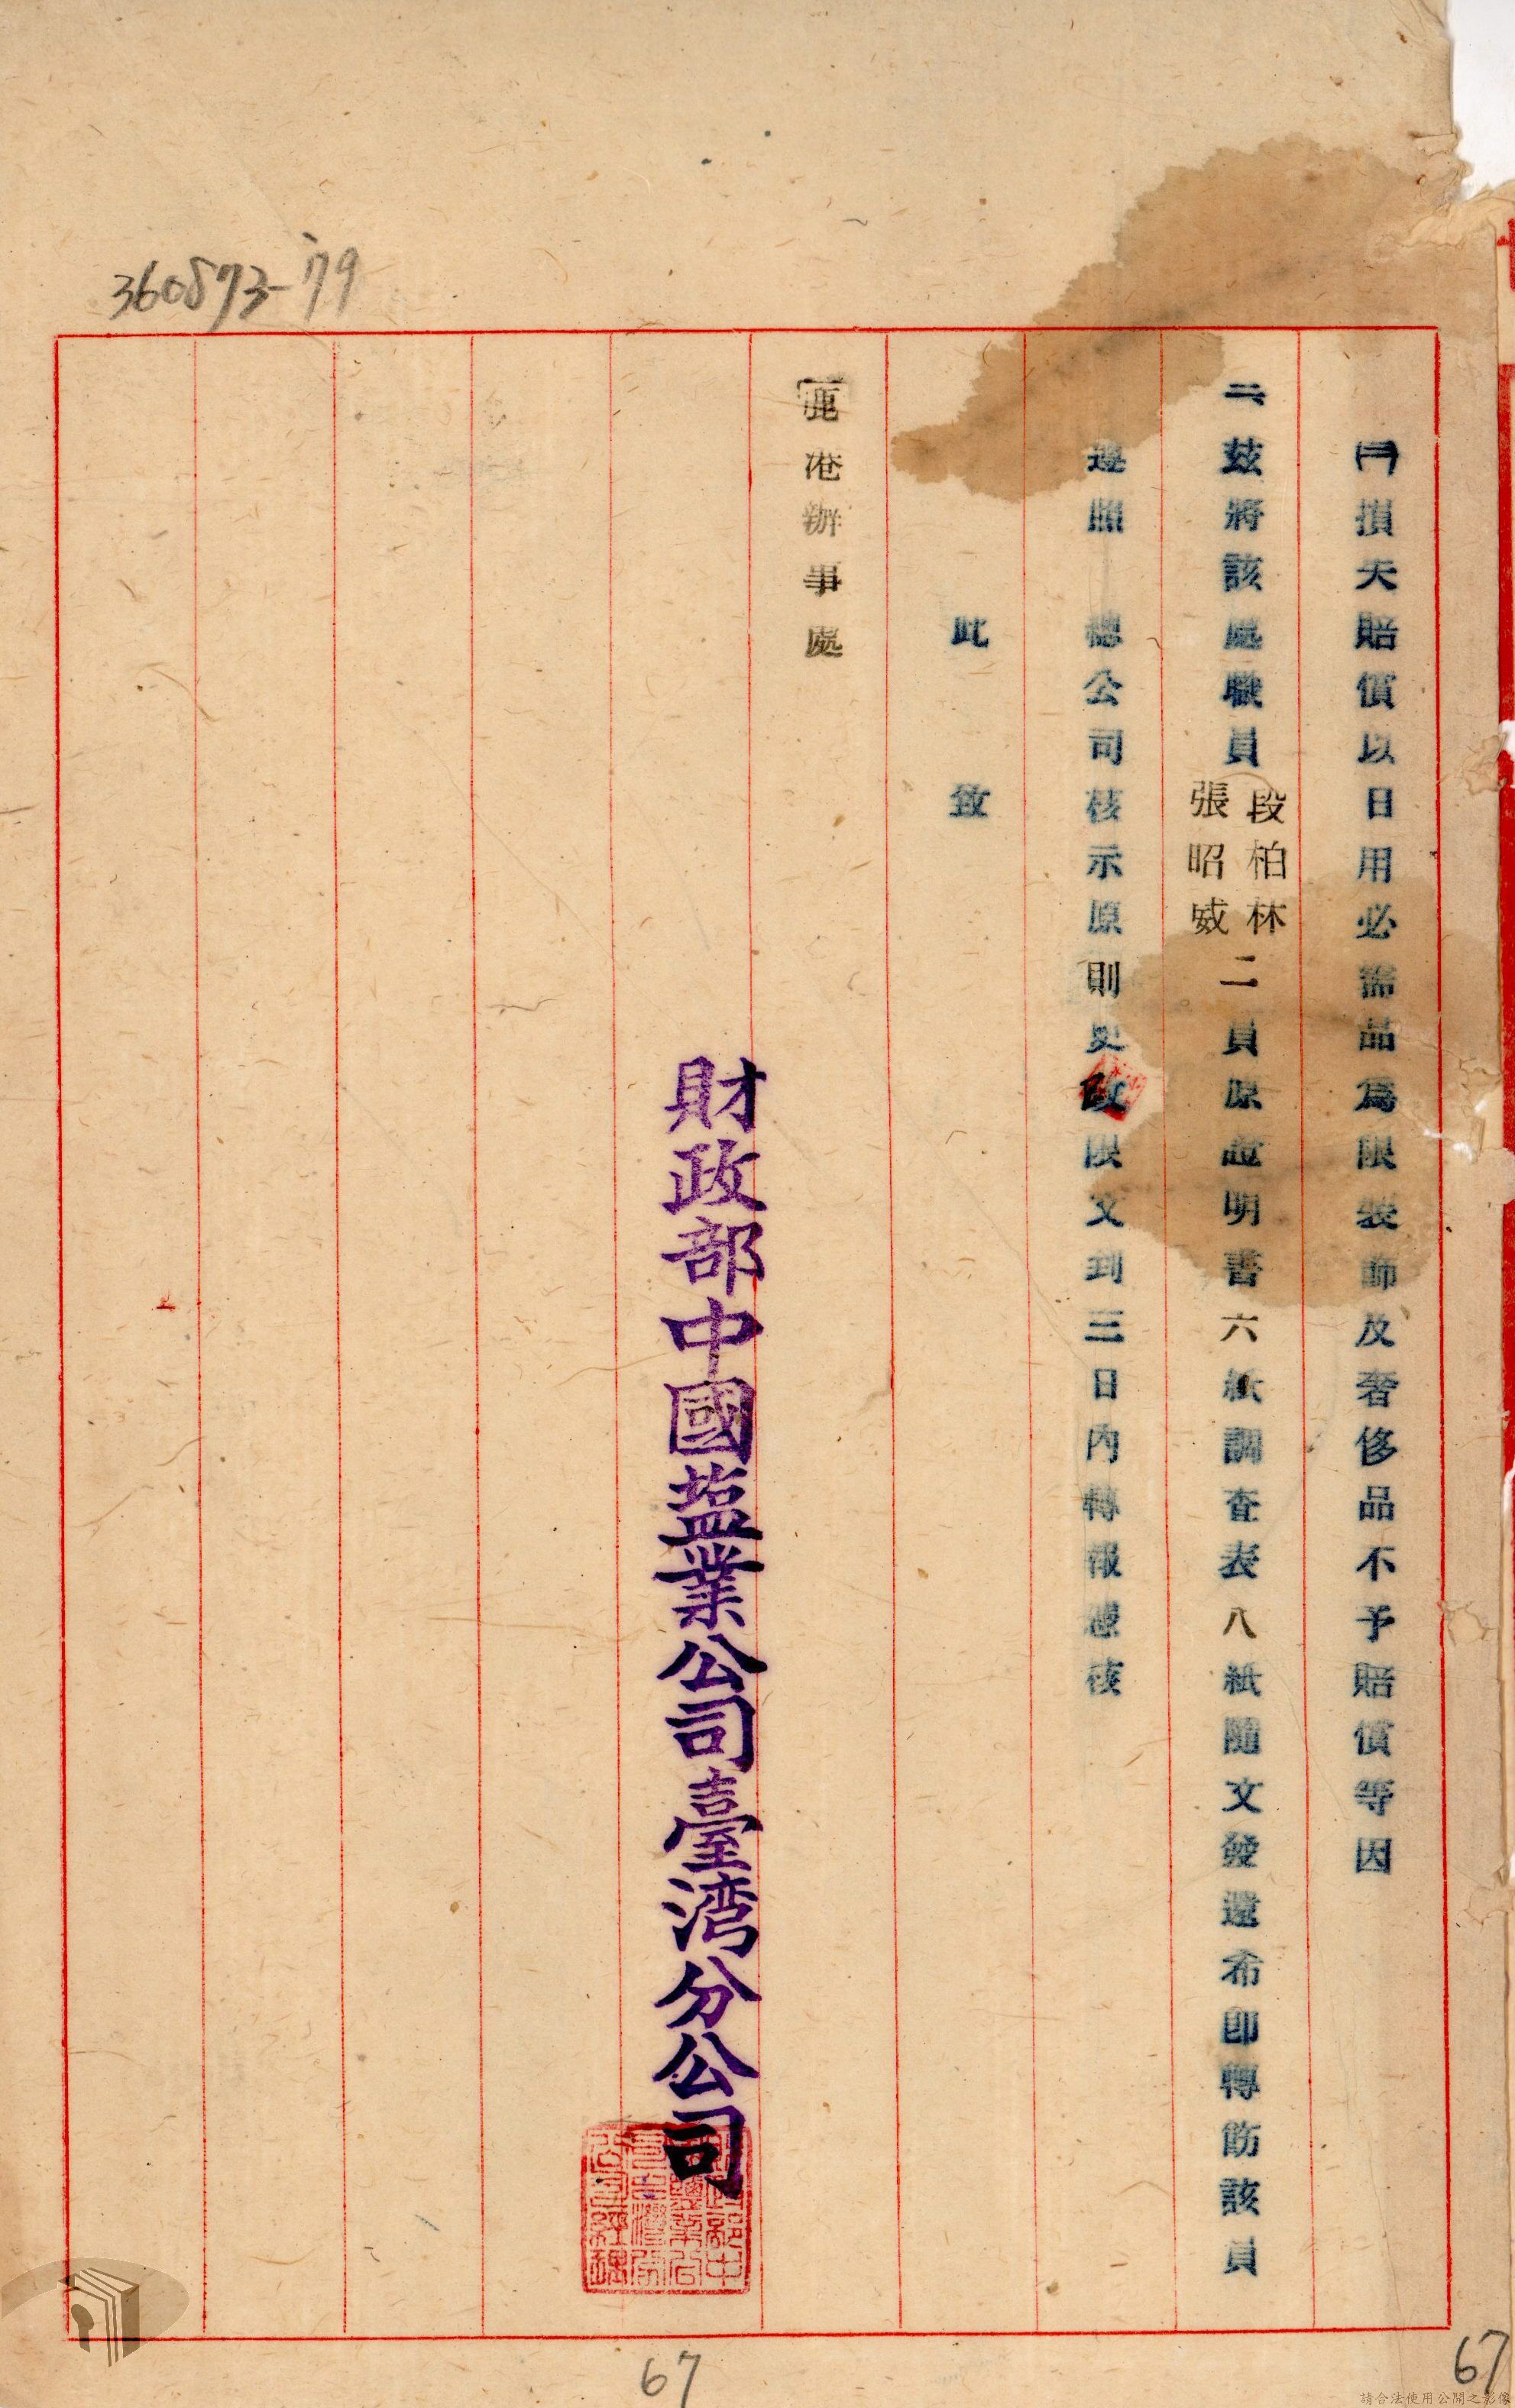 360873-79
㈢損失賠償以日用必需品為限裝飾及奢侈品不予賠償等因
二、茲將該處職員段柏林張昭威二員原證明書六紙調查表八紙隨文發還希即轉飭該員
遵照 總公司核示原則更改限文到三日內轉報憑核
此 致
鹿港辦事處
財政部中國塩業公司臺湾分公司
67
67
請合法使用公開之影像